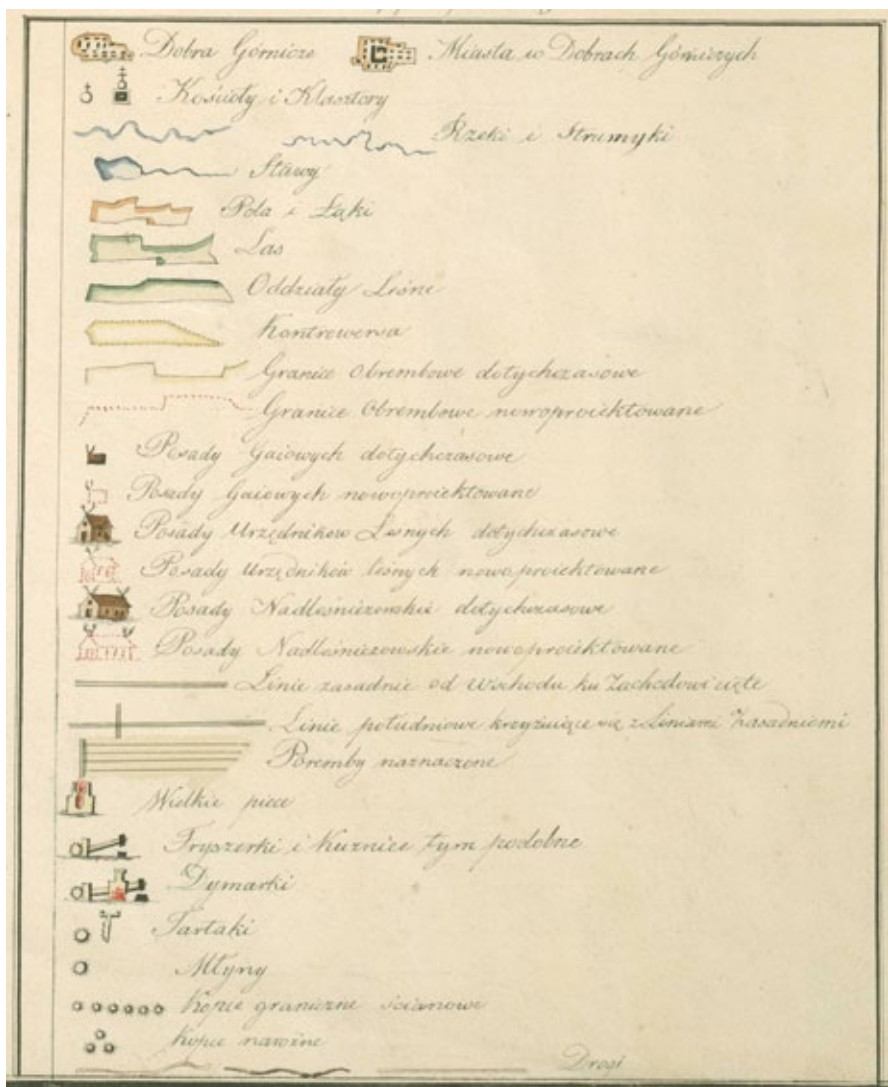 Dobra Górnicze Miasta w Dobrach Górniczych
Kościoły i Klasztory
Rzeki i Strumyki
Stawy
Pola i Łąki
Las
Oddziały Leśne
Kontrowersa
Granice Obrembowe dotychczasowe
Granice Obrembowe nowoproiektowane
Posady Gaiowych dotychczasowe
Posady Gaiowych nowoproiektowane
Posady Urzędników Lesnych dotychczasowe
Posady Urzędników leśnych nowoproiektowane
Posady Nadleśniczowskie dotychczasowe
Posady Nadleśniczowskie nowoproiektowane
Linie zasadnie od Wschodu ku Zachodowi cięte
Linie południowe krzyżuiące się z Liniami Zasadniemi
Poremby naznaczone
Wielkie piece
Fryszerki i Kuznice tym podobne
Dymarki
Tartaki
Młyny
Kopce graniczne ścianowe
Kopce narożne
Drogi